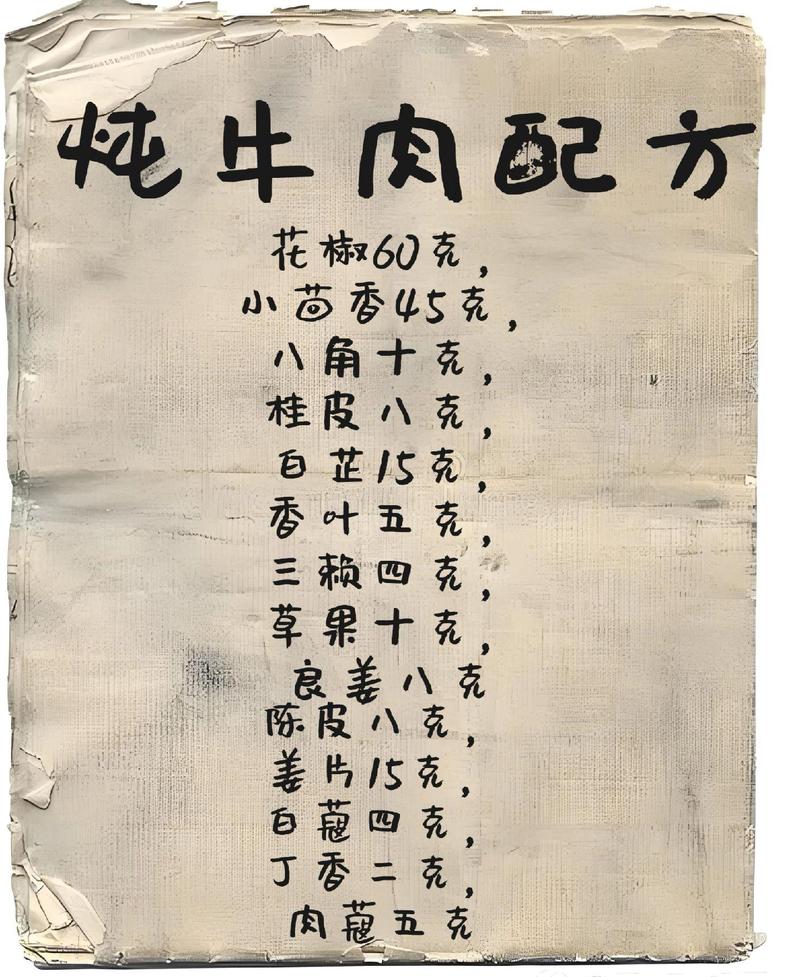 炖牛肉配方
花椒60克，
小茴香45克，
八角十克，
桂皮八克，
白芷15克，
香叶五克，
三赖四克，
草果十克，
良姜八克
陈皮八克，
姜片15克，
白蔻四克，
丁香二克，
肉蔻五克